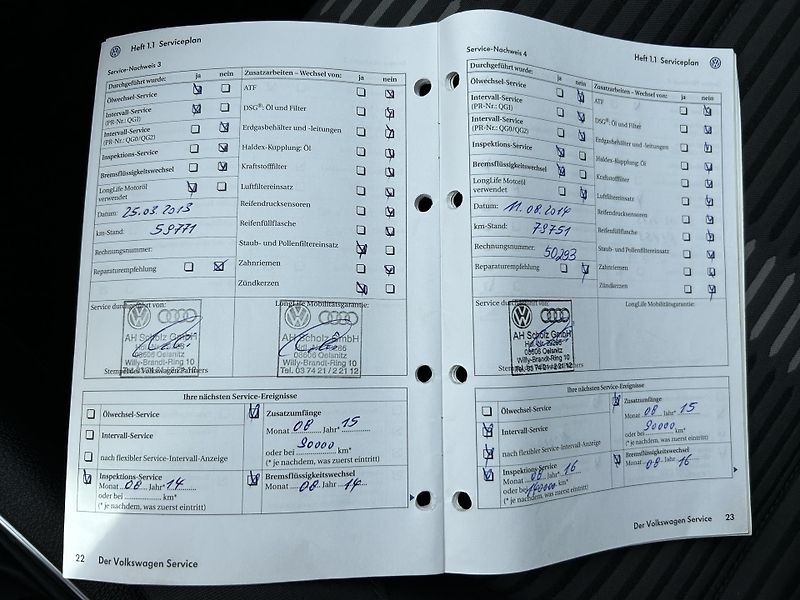 Heft 1.1 Serviceplan
Service-Nachweis 3
Durchgeführt wurde: ja nein
Ölwechsel-Service
Intervall-Service
(PR-Nr.: QG1)
Intervall-Service
(PR-Nr.: QG0/QG2)
Inspektions-Service
Bremsflüssigkeitswechsel
LongLife Motoröl
verwendet
Datum: 25.03.2013
km-Stand: 58771
Rechnungsnummer:
Reparaturempfehlung
Zusatzarbeiten – Wechsel von: ja nein
ATF
DSG®: Öl und Filter
Erdgasbehälter und -leitungen
Haldex-Kupplung: Öl
Kraftstofffilter
Luftfiltereinsatz
Reifendrucksensoren
Reifenfüllflasche
Staub- und Pollenfiltereinsatz
Zahnriemen
Zündkerzen
Service durchgeführt von:
AH Scholz GmbH
08606 Oelsnitz
Willy-Brandt-Ring 10
LongLife Mobilitätsgarantie:
AH Scholz GmbH
08606 Oelsnitz
Willy-Brandt-Ring 10
Tel. 03 74 21 / 2 21 12
Ihre nächsten Service-Ereignisse
Ölwechsel-Service
Intervall-Service
nach flexibler Service-Intervall-Anzeige
Inspektions-Service
Monat 08 Jahr* 14
oder bei km*
(* je nachdem, was zuerst eintritt)
Zusatzumfänge
Monat 08 Jahr* 15
90000
oder bei km*
(* je nachdem, was zuerst eintritt)
Bremsflüssigkeitswechsel
Monat 08 Jahr 14
22 Der Volkswagen Service
Heft 1.1 Serviceplan
Service-Nachweis 4
Durchgeführt wurde: ja nein
Ölwechsel-Service
Intervall-Service
(PR-Nr.: QG1)
Intervall-Service
(PR-Nr.: QG0/QG2)
Inspektions-Service
Bremsflüssigkeitswechsel
LongLife Motoröl
verwendet
Datum: 11.08.2014
km-Stand: 78751
Rechnungsnummer: 50293
Reparaturempfehlung
Zusatzarbeiten – Wechsel von: ja nein
ATF
DSG®: Öl und Filter
Erdgasbehälter und -leitungen
Haldex-Kupplung: Öl
Kraftstofffilter
Luftfiltereinsatz
Reifendrucksensoren
Reifenfüllflasche
Staub- und Pollenfiltereinsatz
Zahnriemen
Zündkerzen
Service durchgeführt von:
AH Scholz GmbH
08606 Oelsnitz
Willy-Brandt-Ring 10
Tel. 03 74 21/2 21 12
LongLife Mobilitätsgarantie:
Ihre nächsten Service-Ereignisse
Ölwechsel-Service
Intervall-Service
nach flexibler Service-Intervall-Anzeige
Inspektions-Service
Monat 08 Jahr* 16
oder bei 140000 km*
(* je nachdem, was zuerst eintritt)
Zusatzumfänge
Monat 08 Jahr* 15
90000
oder bei km*
(* je nachdem, was zuerst eintritt)
Bremsflüssigkeitswechsel
Monat 08 Jahr 16
Der Volkswagen Service 23